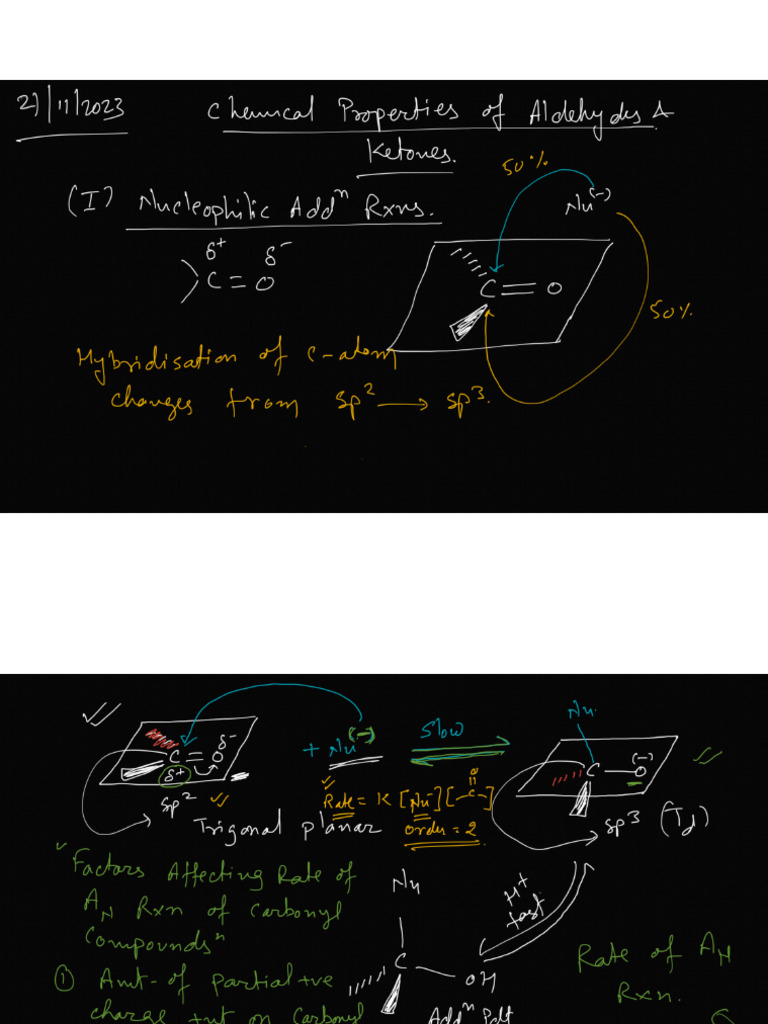 21/11/2023 Chemical Properties of Aldehydes &
Ketones.
(I) Nucleophilic Addⁿ Rxns.
50%
Nu(-)
δ+ δ-
C=O
C=O
50%
Hybridisation of C-atom
changes from sp² → sp³.
Nu.
δ-
C=O
δ+
+ Nu(-)
slow
(-)
C-O
sp²
Rate = K [Nu-][-C-]
O
sp³ (Td)
Trigonal planar
order = 2
Factors Affecting Rate of
AN Rxn of Carbonyl
Compoundsⁿ
Nu
H+
fast
C-OH
Rate of AN
Rxn.
① Amt- of partial +ve
charge +nt on Carbonyl
Addⁿ Pdt